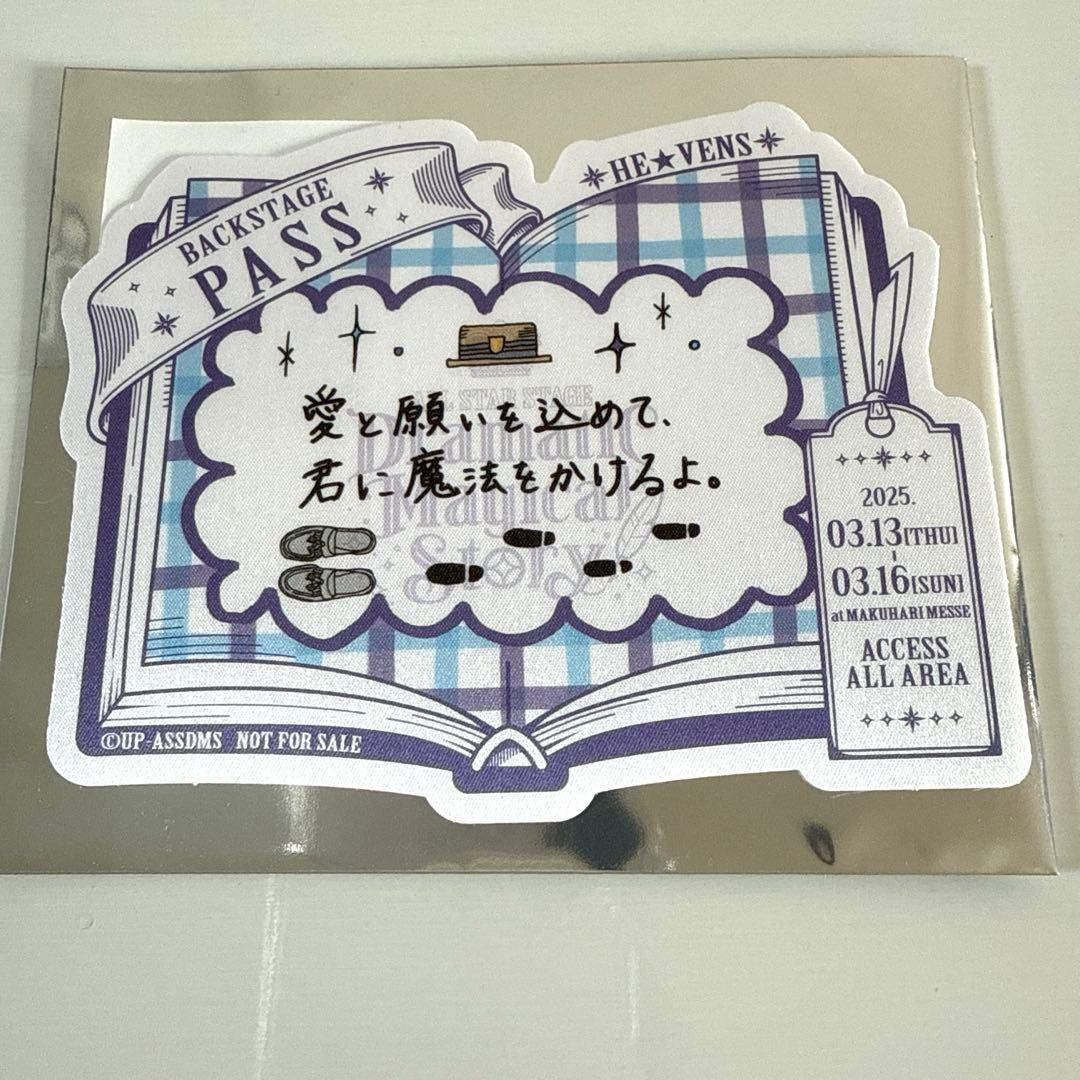 BACKSTAGE
PASS
HE★VENS
愛と願いを込めて、
君に魔法をかけるよ。
STAR STAGE
Dramatic
Magical
Story
2025.
03.13[THU]
-
03.16[SUN]
at MAKUHARI MESSE
ACCESS
ALL AREA
©UP-ASSDMS NOT FOR SALE